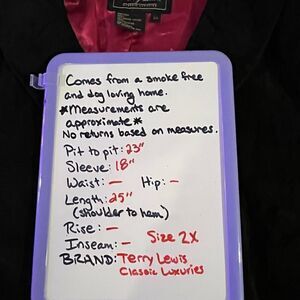 Comes from a smoke free
and dog loving home.
*Measurements are
approximate*
No returns based on measures.
Pit to pit: 23"
Sleeve: 18"
Waist: — Hip: —
Length: 25"
(shoulder to hem)
Rise: —
Inseam: — Size 2X
BRAND: Terry Lewis
Classic Luxuries